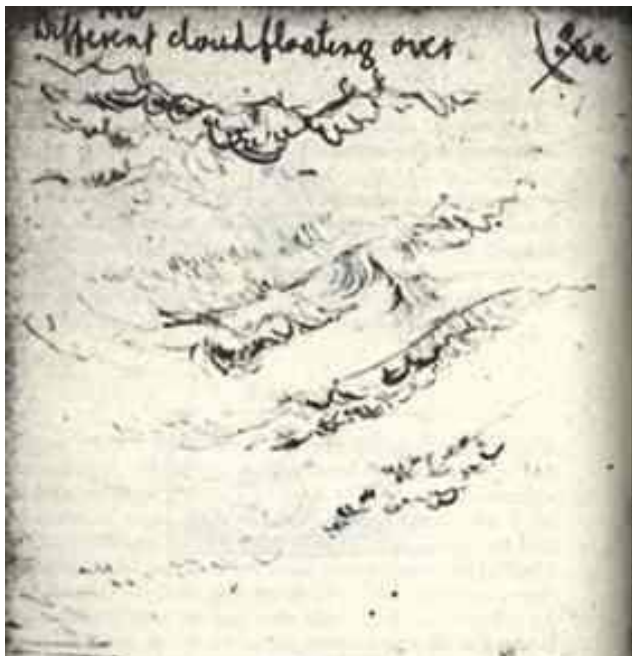 Different cloud floating over